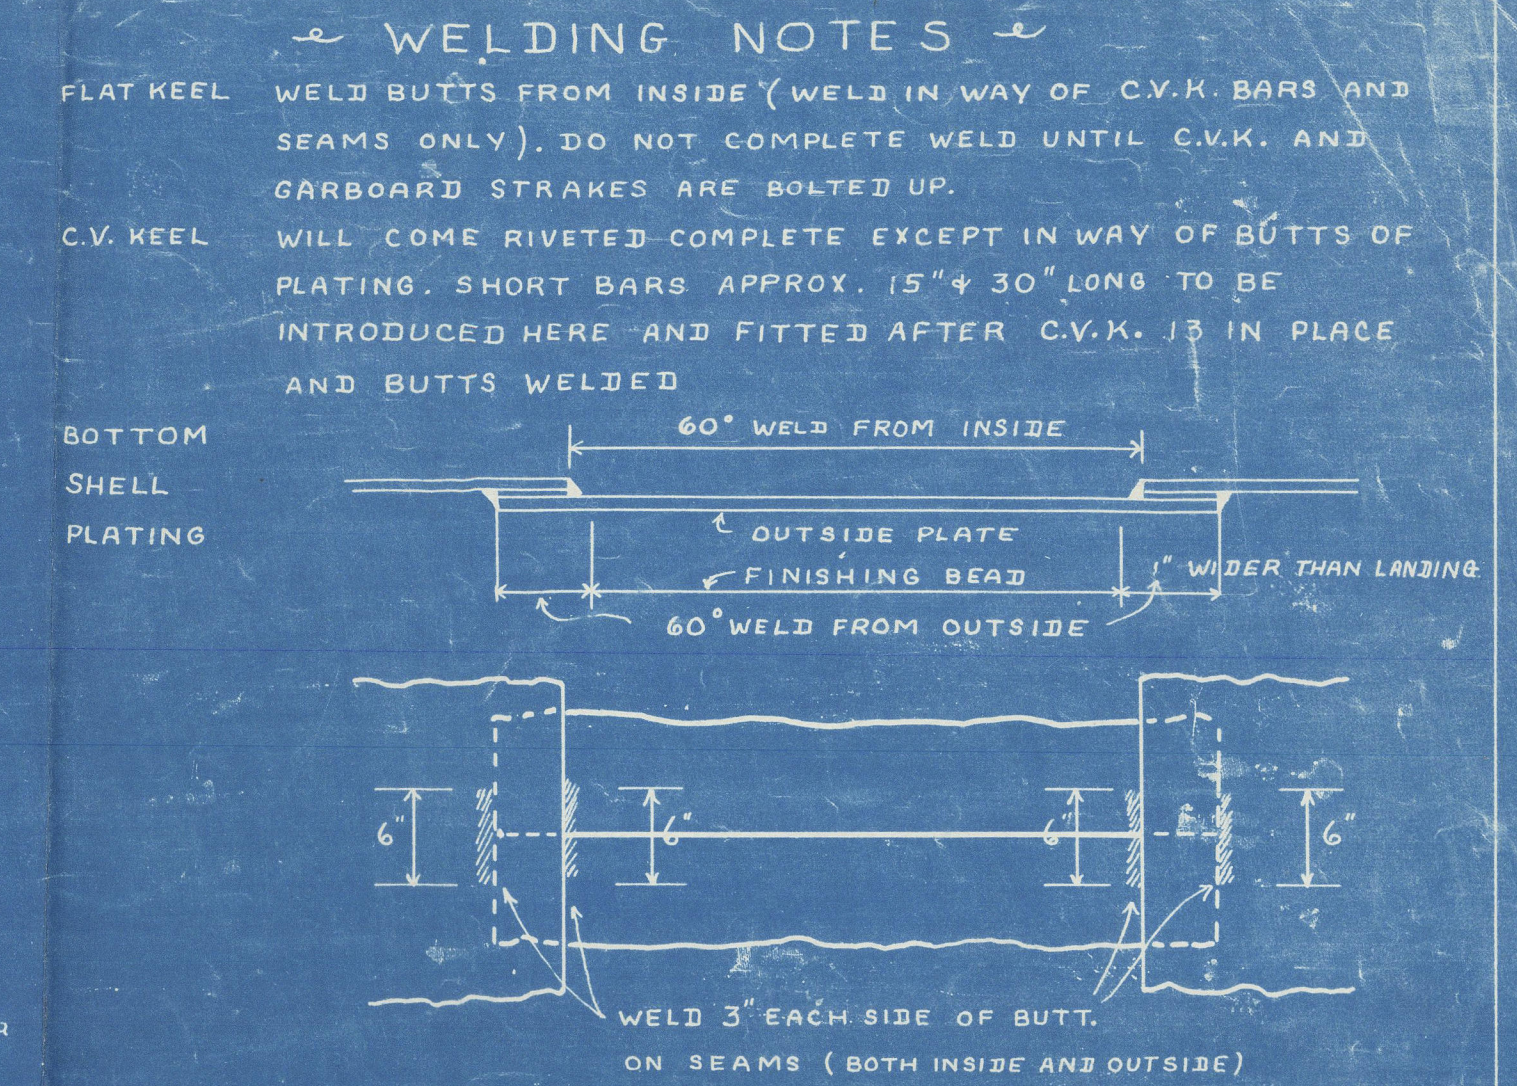 WELDING NOTES
FLAT KEEL WELD BUTTS FROM INSIDE (WELD IN WAY OF C.V.K. BARS AND
SEAMS ONLY). DO NOT COMPLETE WELD UNTIL C.V.K. AND
GARBOARD STRAKES ARE BOLTED UP.
C.V. KEEL WILL COME RIVETED COMPLETE EXCEPT IN WAY OF BUTTS OF
PLATING. SHORT BARS APPROX. 15" & 30" LONG TO BE
INTRODUCED HERE AND FITTED AFTER C.V.K. 13 IN PLACE
AND BUTTS WELDED
BOTTOM
SHELL
PLATING
60° WELD FROM INSIDE
OUTSIDE PLATE
FINISHING BEAD
1" WIDER THAN LANDING.
60° WELD FROM OUTSIDE
6" 6" 6" 6"
WELD 3" EACH SIDE OF BUTT.
ON SEAMS (BOTH INSIDE AND OUTSIDE)
R